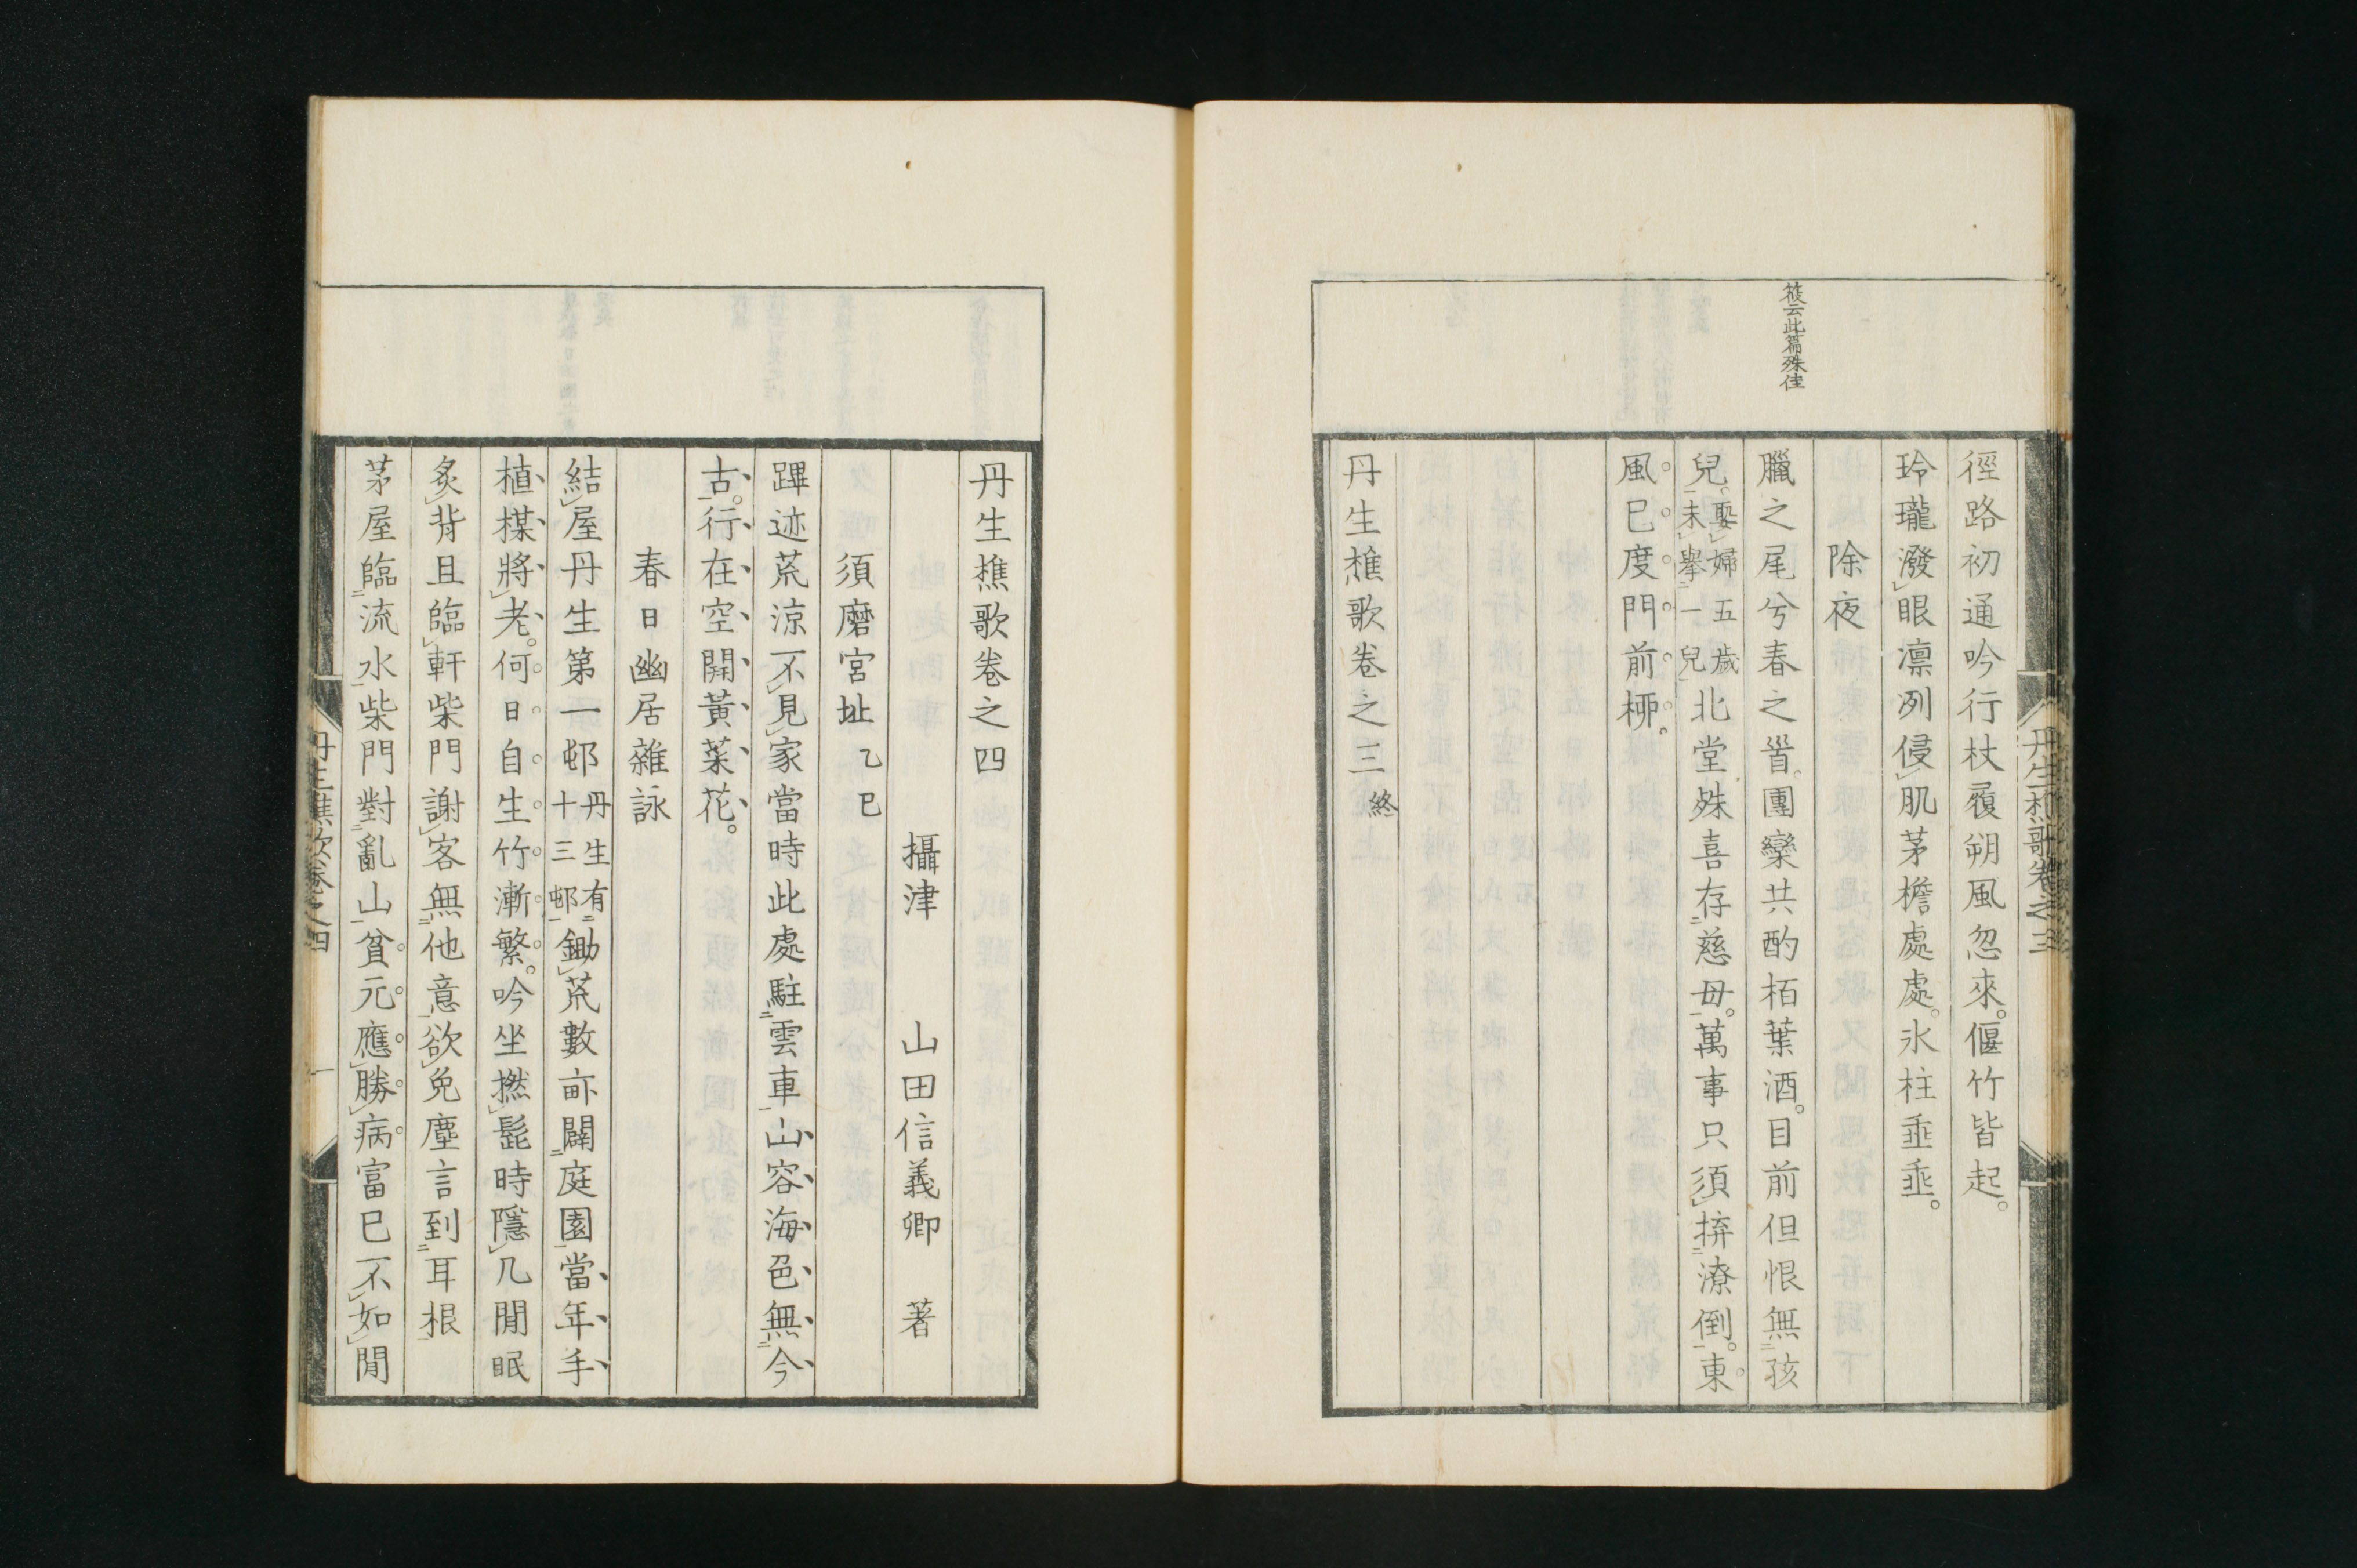 筱云此篇殊佳
徑路初通吟行杖履朔風忽來。偃竹皆起。
玲瓏潑眼凛冽侵肌茅檐處處。氷柱埀埀。
除夜
臘之尾兮春之首。團欒共酌栢葉酒。目前但恨無孩
兒。娶婦五歲未擧一兒北堂殊喜存慈母。萬事只須拚潦倒。東
風已度門前栁。
丹生樵歌卷之三 終
丹生樵歌卷之三
丹生樵歌卷之四
攝津 山田信義卿 著
須磨宮址 乙巳
蹕迹荒涼不見家當時此處駐雲車山容海色無今
古。行在空開黃菜花。
春日幽居雜詠
結屋丹生第一邨丹生有十三邨鋤荒數畝闢庭園當年手
植楳將老。何日自生竹漸繁。吟坐撚髭時隱几閒眠
炙背且臨軒柴門謝客無他意欲免塵言到耳根
茅屋臨流水柴門對亂山貧元應勝病富已不如閒
丹生樵歌卷之四
一